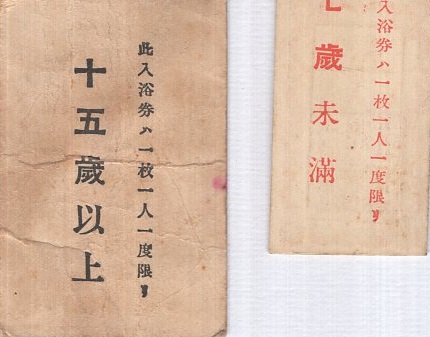 此入浴券ハ一枚一人一度限リ
十五歲以上
入浴券ハ一枚一人一度限リ
七歲未滿